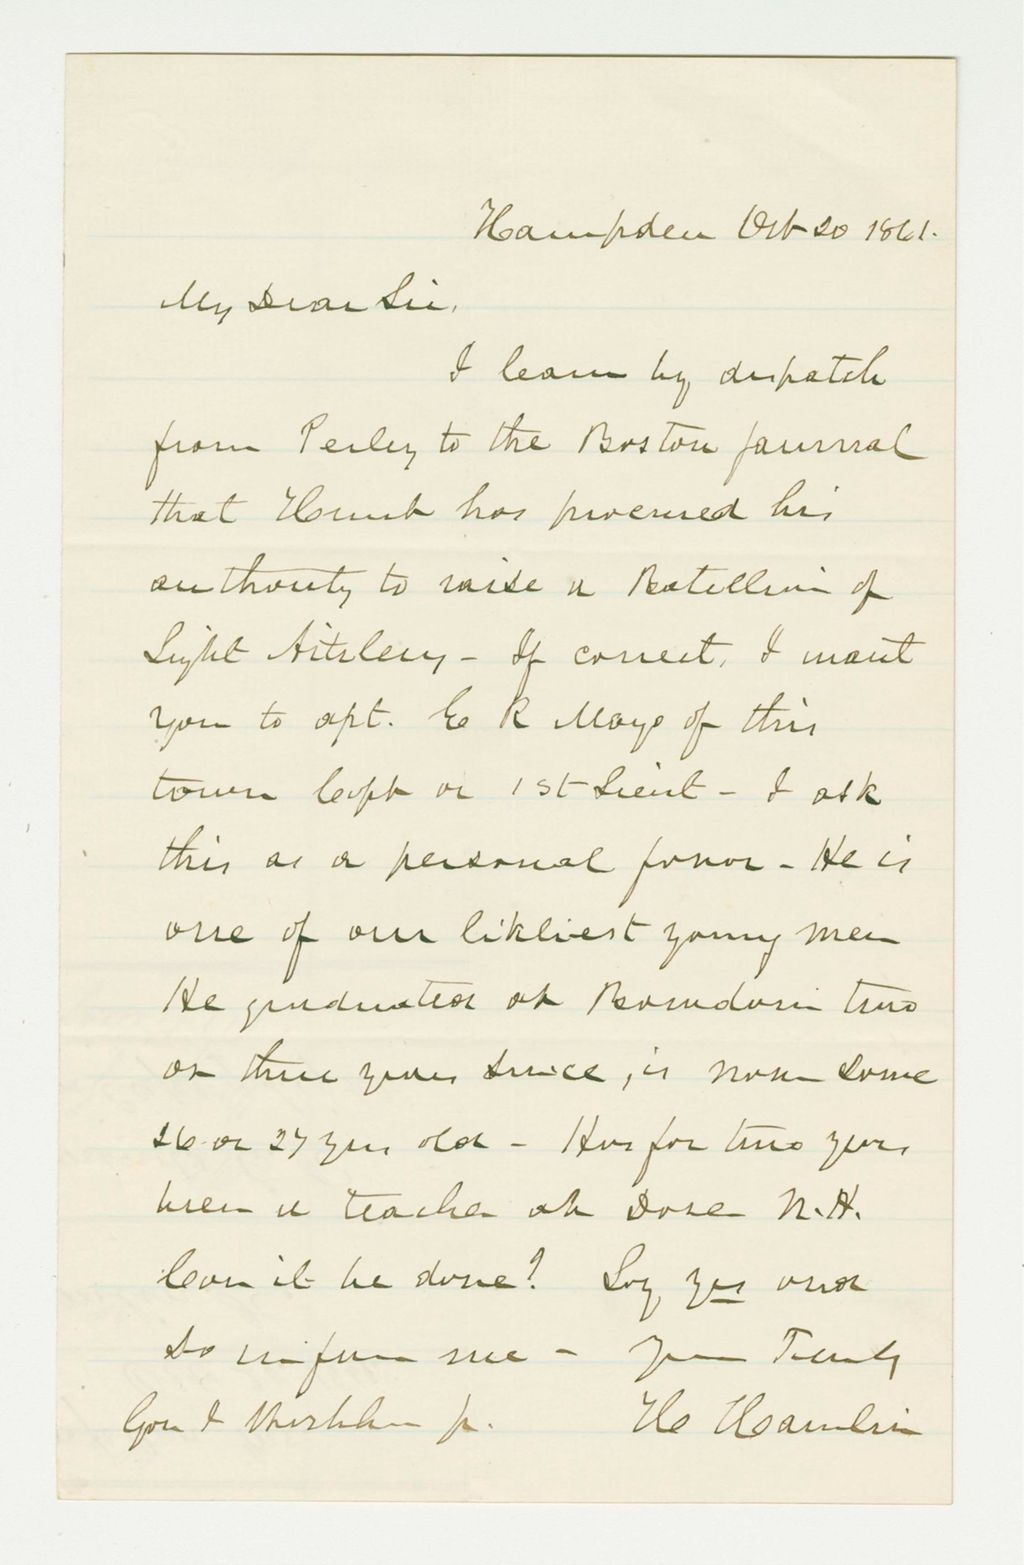 Hampden Oct 20 1861.
My Dear Sir,
I learn by dispatch
from Perley to the Boston Journal
that Hunt has procured his
authority to raise a Batellion of
Light Artilery - If correct, I want
you to apt. E R Mayo of this
town Capt or 1st Lieut - I ask
this as a personal favor - He is
one of our likliest young men
He graduated at Bowdoin two
or three years since, is now some
26 or 27 yrs old - Has for two years
been a teacher at Dover N.H.
Can it be done? Say yes and
so inform me - Yours Truly
Gov I Washburn jr. H Hamlin